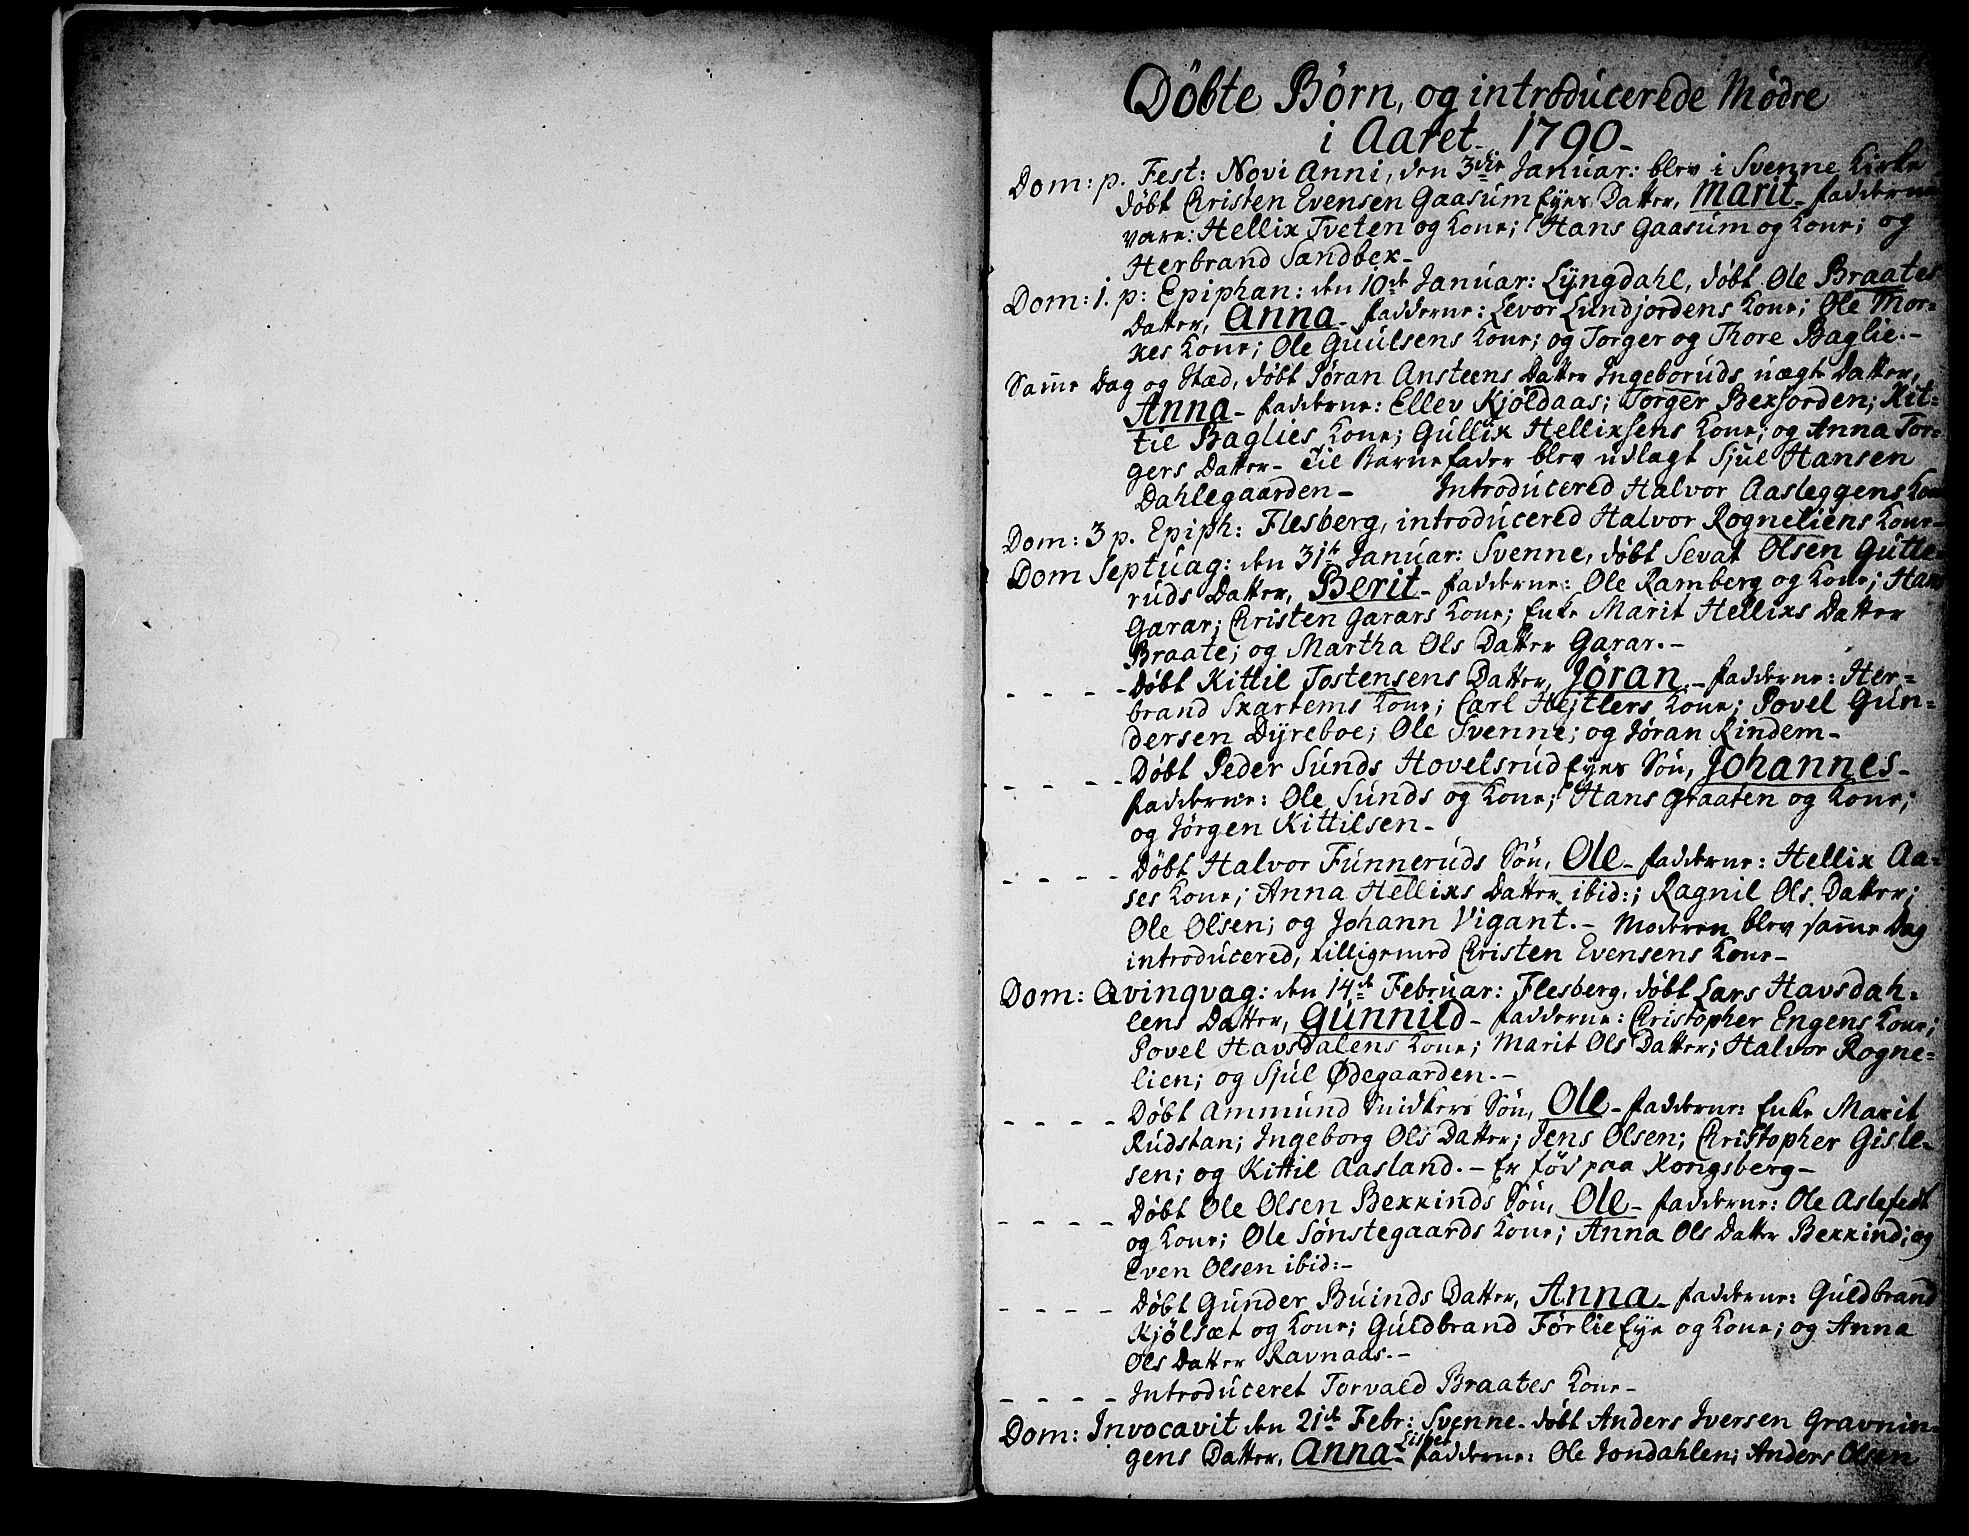 Döbte Börn, og introdúcerede Mödre
i Aaret 1790.
Dom: p. Fest: Novi Anni, den 3die Januar: blev i Svenne Kirke
döbt Christen Evensen Gaasum Eyes Datter, Marit - fadderne
vare: Hellix Tveten og Kone; Hans Gaasum og Kone; og
Herbrand Sandbex -
Dom: 1. p: Epiphan: den 10de Januar: Lyngdahl, döbt Ole Braates
Datter, Anna - fadderne: Levor Lundjordens Kone; Ole Mor=
kes Kone; Ole Guulsens Kone; og Torger og Thore Baglie. -
Samme Dag og Stæd, döbt Jöran Ansteens Datter Ingeboruds uægte Datter,
Anna - fadderne: Ellev Kjöldaas; Torger Bexjorden; Kit=
til Baglies Kone; Gullix Hellixsens Kone; og Anna Tor=
gers Datter - Til Barnefader blev udlagt Sjul Hansen
Dahlegaarden - Introdúcered Halvor Aasleggens Kone
Dom: 3 p. Epiph: Flesberg, introdúcered Halvor Rogneliens Kone -
Dom Septuag: den 31te Januar: Svenne, döbt Sevat Olsen Gutte=
ruds Datter, Berit - fadderne: Ole Ramberg og Kone; Hans
Garar; Christen Garars Kone; Enke Marit Hellixs Datter
Braate; og Martha Ols Datter Garar. -
- - - - Döbt Kittil Tostensens Datter, Jöran - fadderne: Her=
brand Skartems Kone; Carl Hejtlers Kone; Povel Gun=
dersen Dyreboe; Ole Svenne; og Jöran Rindem -
- - - - Döbt Peder Sunds Hovelsrud Eyes Sön, Johannes -
fadderne: Ole Sunds og Kone; Hans Graaten og Kone;
og Jörgen Kittilsen -
- - - - Döbt Halvor Funneruds Sön, Ole - fadderne: Hellix Aa=
ses Kone; Anna Hellixs Datter ibid:; Ragnil Ols Datter;
Ole Olsen; og Johann Vigant. - Moderen blev samme Dag
introdúcered, tilligemed Christen Evensens Kone -
Dom: Qvinqvag: den 14de Februar: Flesberg, döbt Lars Havsdah=
lens Datter, Gunnild - fadderne: Christopher Engens Kone;
Povel Havsdalens Kone; Marit Ols Datter; Halvor Rogne=
lien; og Sjul Ødegaarden. -
- - - - Döbt Ammund Snidkers Sön, Ole - fadderne: Enke Marit
Rudstan; Ingeborg Ols Datter; Jens Olsen; Christopher Gisle=
sen; og Kittil Aasland. - Er föd paa Kongsberg -
- - - - Döbt Ole Olsen Bekkinds Sön, Ole - fadderne: Ole Aslefedt
og Kone; Ole Sönstegaards Kone; Anna Ols Datter Bekkind; og
Even Olsen ibid: -
- - - - Döbt Gunder Buinds Datter, Anna - fadderne: Guldbrand
Kjölsæt og Kone; Guldbrand Förlie Eye og Kone; og Anna
Ols Datter Ravnaas. -
- - - - Introdúceret Torvald Braates Kone -
Dom: Invocavit den 21de Febr: Svenne - döbt Anders Iversen Gravnin=
gens Datter, Anna Lisbet - fadderne: Ole Jondahlen; Anders Olsen